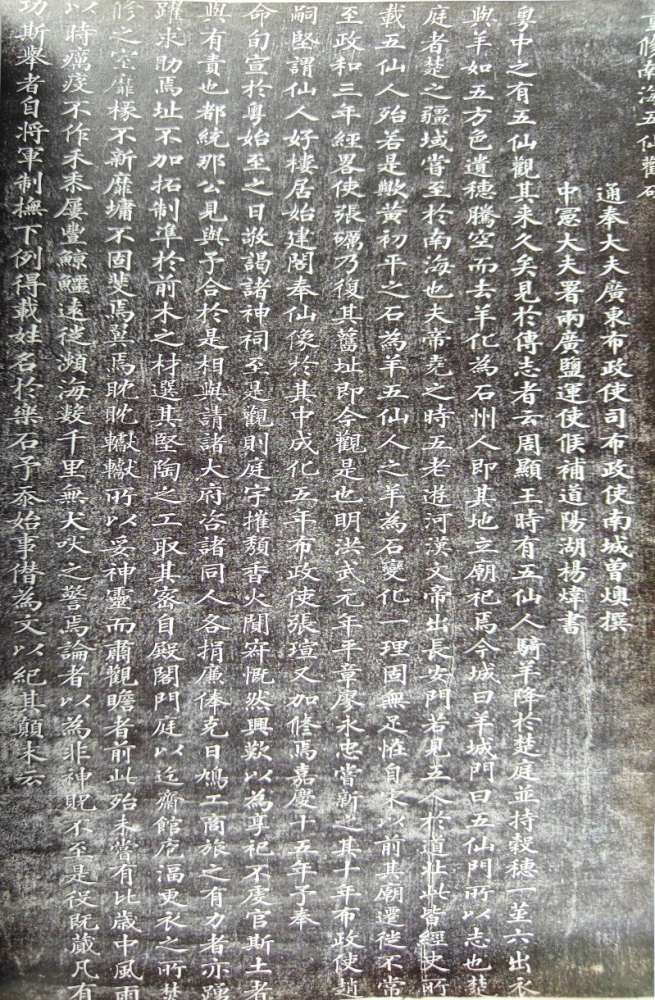 重修南海五仙觀碑
通奉大夫廣東布政使司布政使南城曾燠撰
中憲大夫署兩廣鹽運使候補道陽湖楊煒書
粵中之有五仙觀其來久矣見於傳志者云周顯王時有五仙人騎羊降於楚庭並持穀穗一莖六出衣
與羊如五方色遺穗騰空而去羊化為石州人即其地立廟祀焉今城曰羊城門曰五仙門所以志也楚
庭者楚之疆域嘗至於南海也夫帝堯之時五老遊河漢文帝出長安門若見五人於道北此皆經史所
載五仙人殆若是歟黃初平之石為羊五仙人之羊為石變化一理固無足怪自宋以前其廟遷徙不常
至政和三年經畧使張礪乃復其舊址即今觀是也明洪武元年平章廖永忠嘗新之其十年布政使趙
嗣堅謂仙人好樓居始建閣奉仙像於其中成化五年布政使張瑄又加修焉嘉慶十五年予奉
命旬宣於粵始至之日敬謁諸神祠至是觀則庭宇摧頹香火闃寂慨然興歎以為享祀不虔官斯土者
與有責也都統那公見與予合於是相與請諸大府咨諸同人各捐廉俸克日鳩工商旅之有力者亦踴
躍求助焉址不加拓制準於前木之材選其堅陶之工取其密自殿閣門庭以迄齋館庖湢更衣之所焚
修之室靡椽不新靡墉不固斐焉翼焉眈眈轍轍所以妥神靈而肅觀瞻者前此殆未嘗有比歲中風雨
以時癘疫不作禾黍屢豐鯨鱷遠徙頻海數千里無犬吠之警焉論者以為非神貺不至是役既蕆凡有
功斯舉者自將軍制撫下例得載姓名於樂石予忝始事僭為文以紀其顛末云